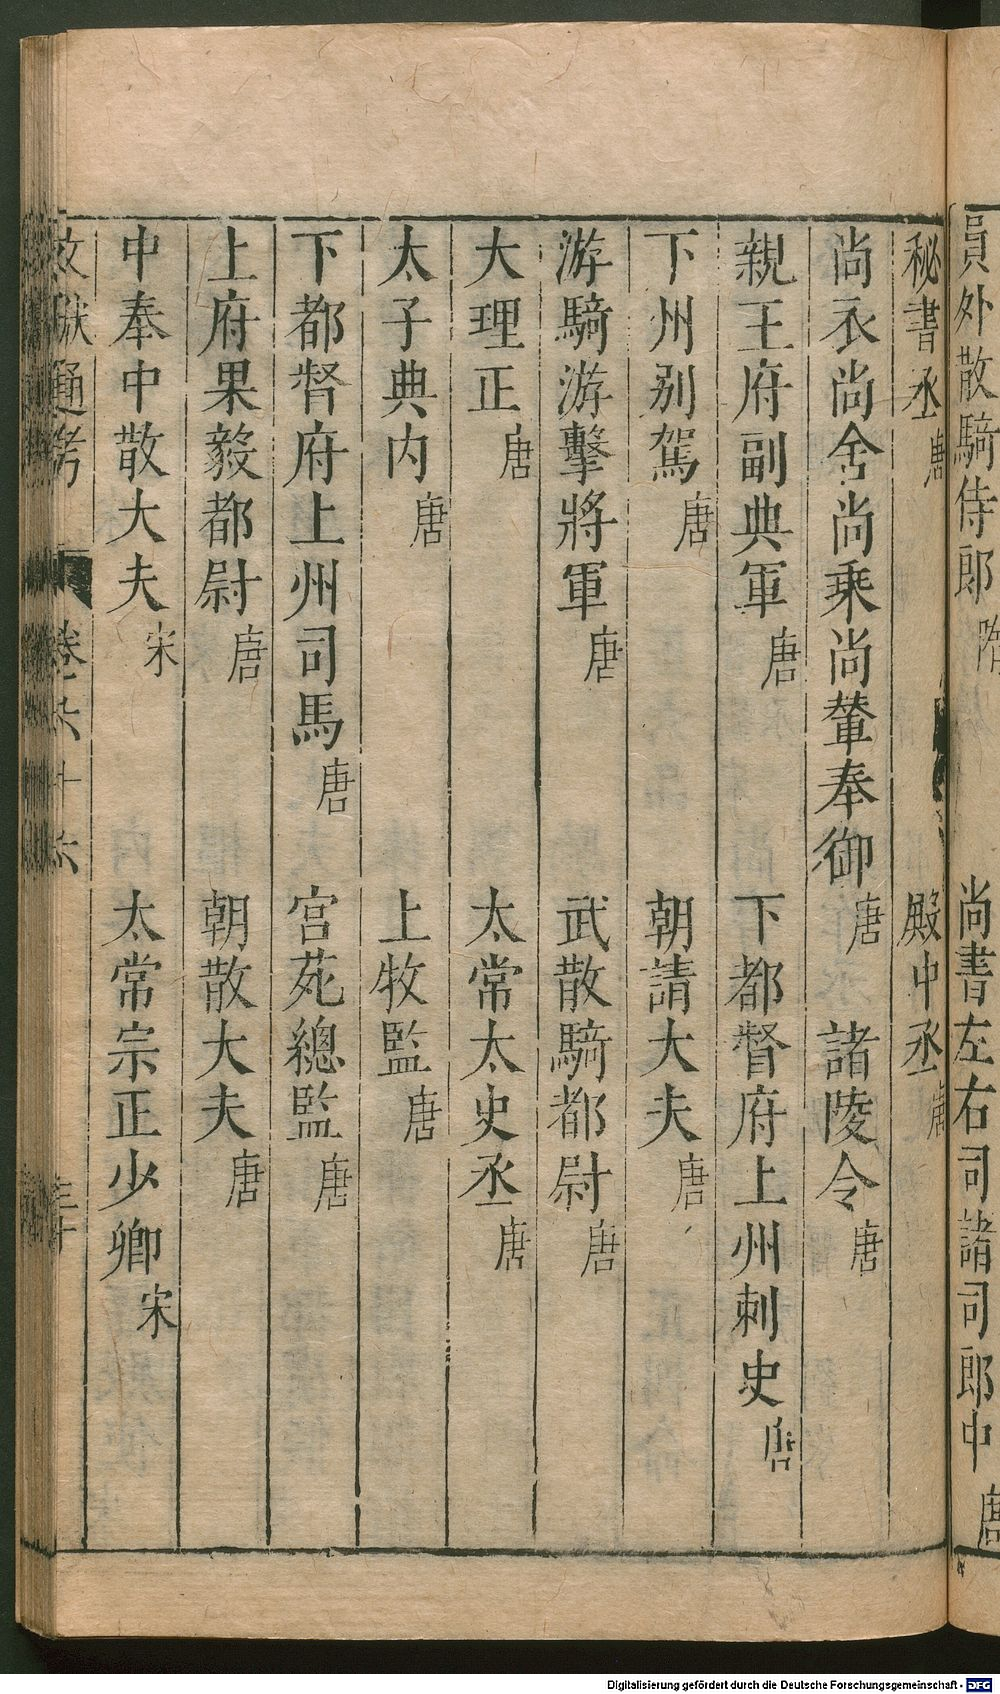 員外散騎侍郎 隋 尚書左右司諸司郎中 唐
秘書丞 唐 殿中丞 唐
尚衣尚舍尚乘尚輦奉御 唐 諸陵令 唐
親王府副典軍 唐 下都督府上州刺史 唐
下州別駕 唐 朝請大夫 唐
游騎游擊將軍 唐 武散騎都尉 唐
大理正 唐 太常太史丞 唐
太子典內 唐 上牧監 唐
下都督府上州司馬 唐 宮苑總監 唐
上府果毅都尉 唐 朝散大夫 唐
中奉中散大夫 宋 太常宗正少卿 宋
文獻通考 卷六十六 三十
Digitalisierung gefördert durch die Deutsche Forschungsgemeinschaft - DFG